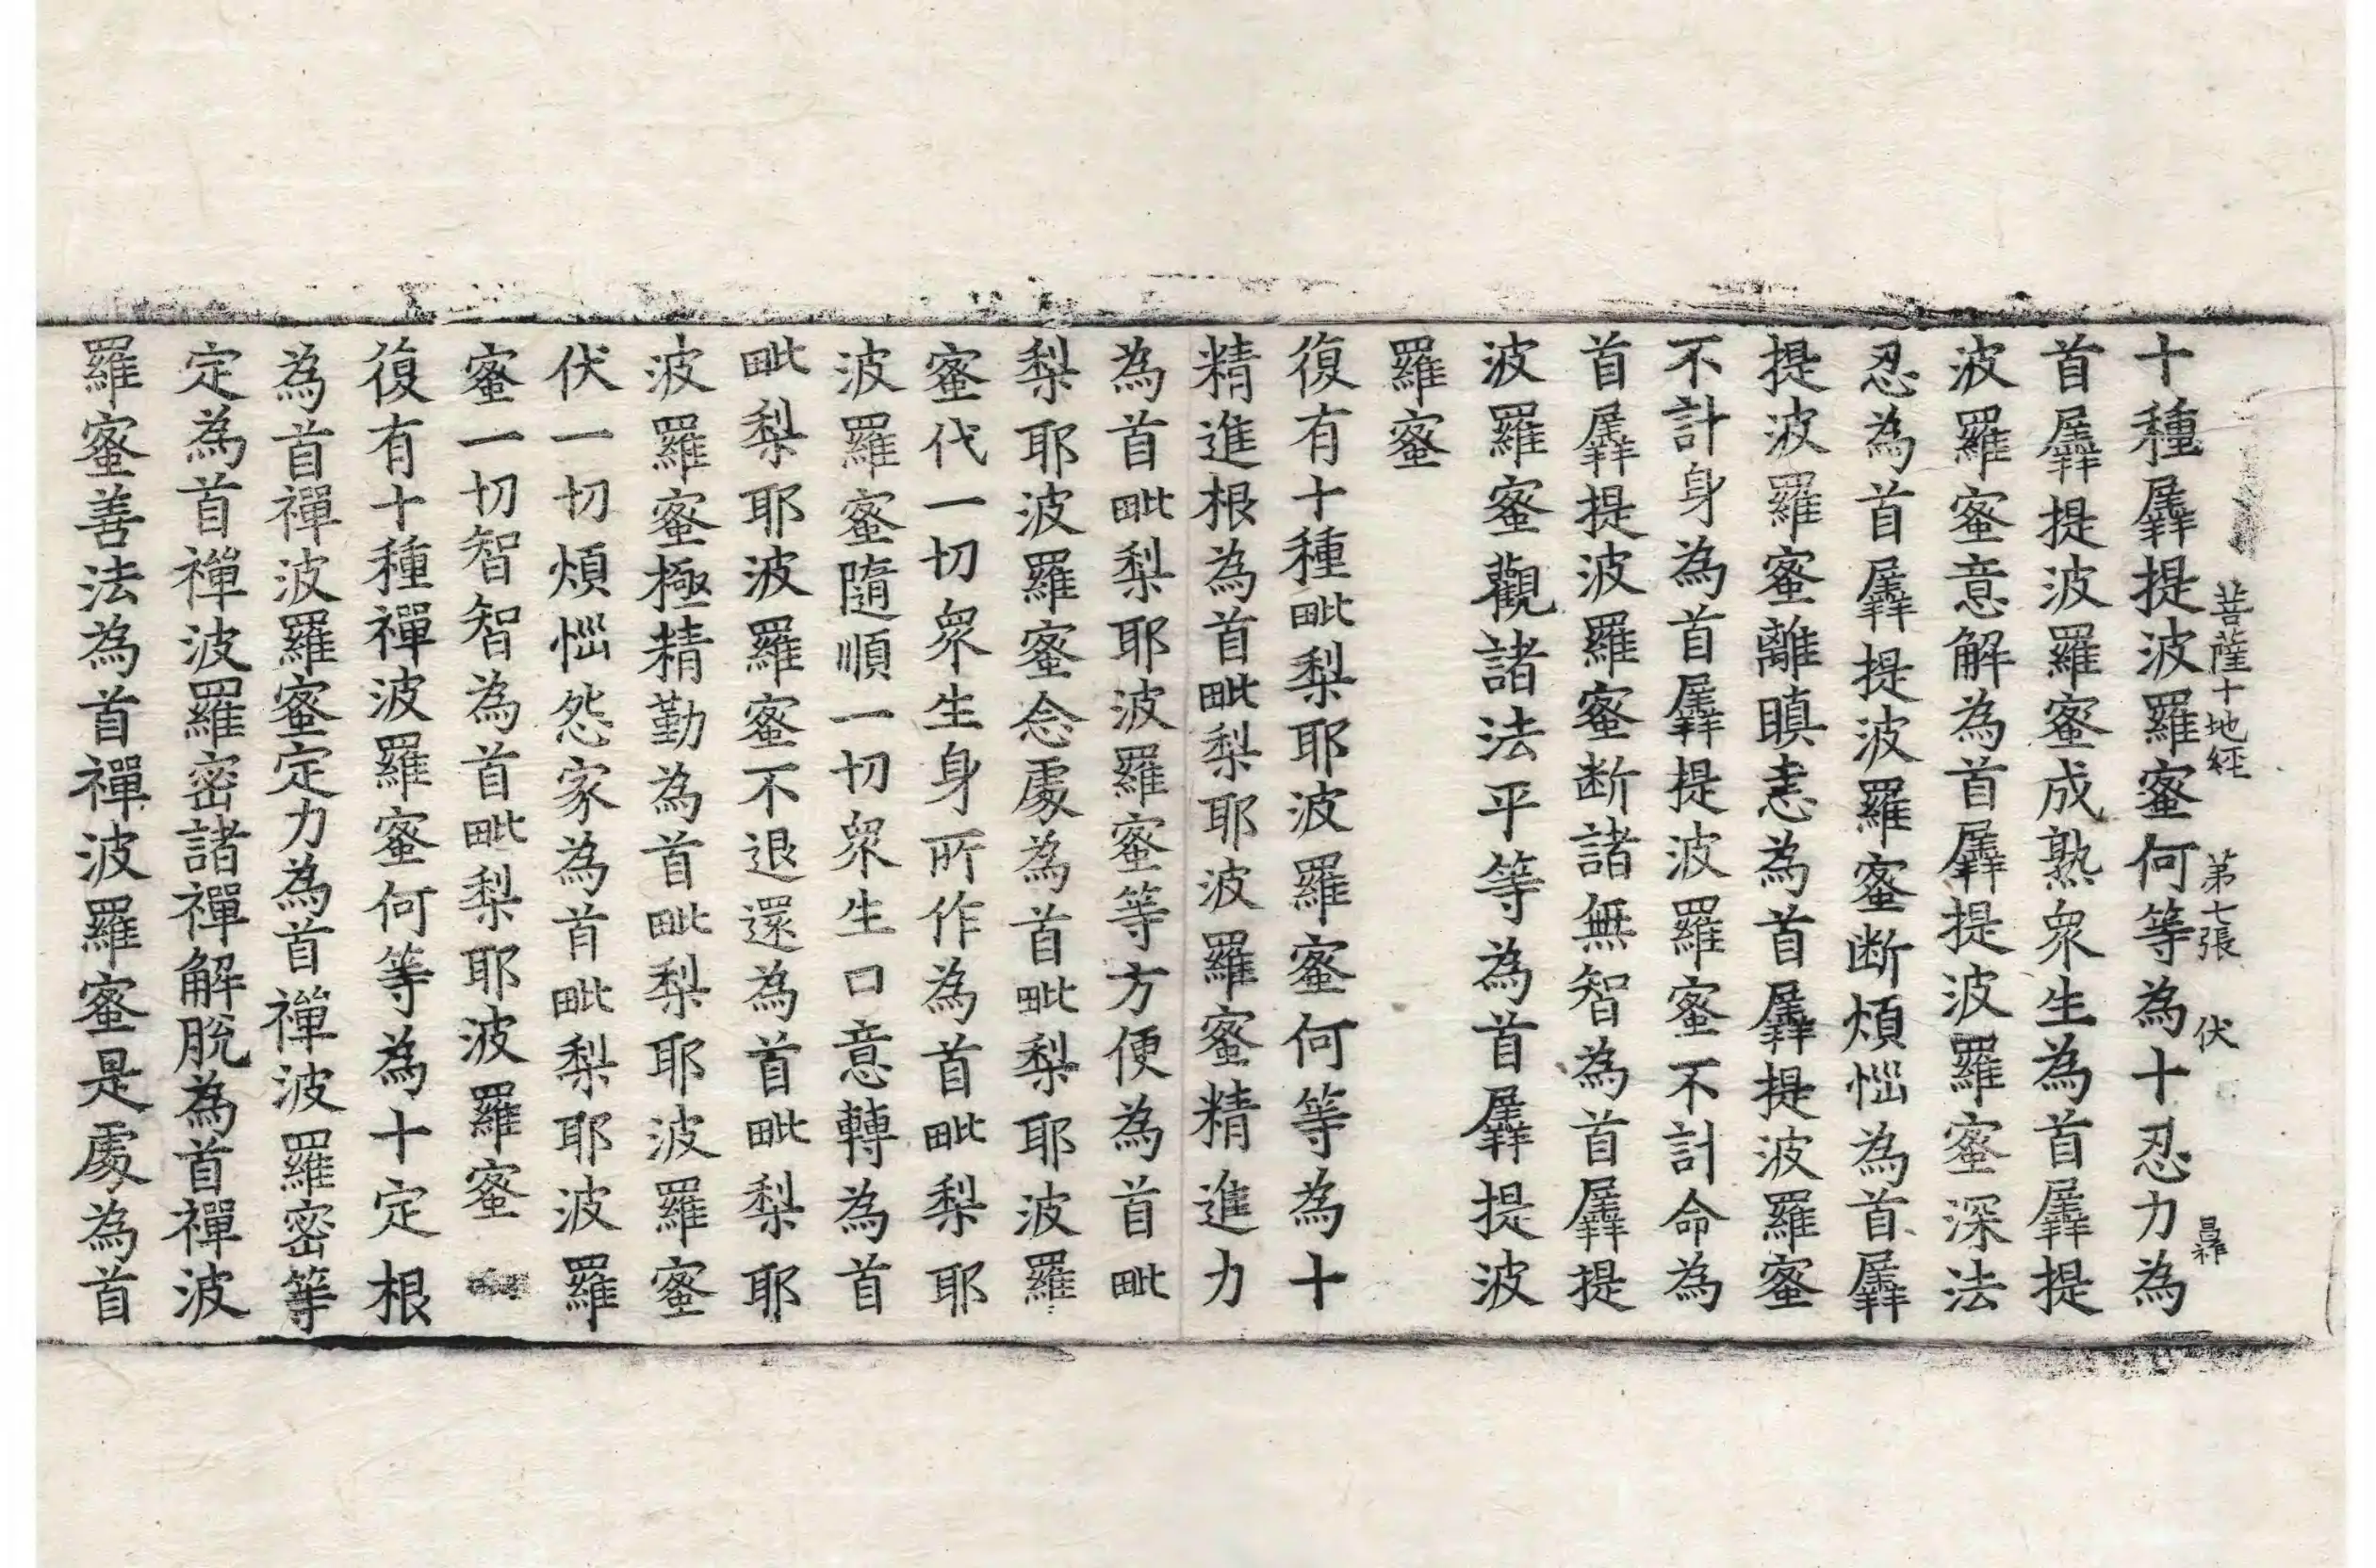 菩薩十地經 第七張 伏 昌祚
十種羼提波羅蜜何等為十忍力為
首羼提波羅蜜成熟衆生為首羼提
波羅蜜意解為首羼提波羅蜜深法
忍為首羼提波羅蜜断煩惱為首羼
提波羅蜜離瞋恚為首羼提波羅蜜
不計身為首羼提波羅蜜不計命為
首羼提波羅蜜断諸無智為首羼提
波羅蜜觀諸法平等為首羼提波
羅蜜
復有十種毗梨耶波羅蜜何等為十
精進根為首毗梨耶波羅蜜精進力
為首毗梨耶波羅蜜等方便為首毗
梨耶波羅蜜念處為首毗梨耶波羅
蜜代一切衆生身所作為首毗梨耶
波羅蜜隨順一切衆生口意轉為首
毗梨耶波羅蜜不退還為首毗梨耶
波羅蜜極精勤為首毗梨耶波羅蜜
伏一切煩惱怨家為首毗梨耶波羅
蜜一切智智為首毗梨耶波羅蜜
復有十種禪波羅蜜何等為十定根
為首禪波羅蜜定力為首禪波羅密等
定為首禪波羅密諸禪解脫為首禪波
羅蜜善法為首禪波羅蜜是處為首